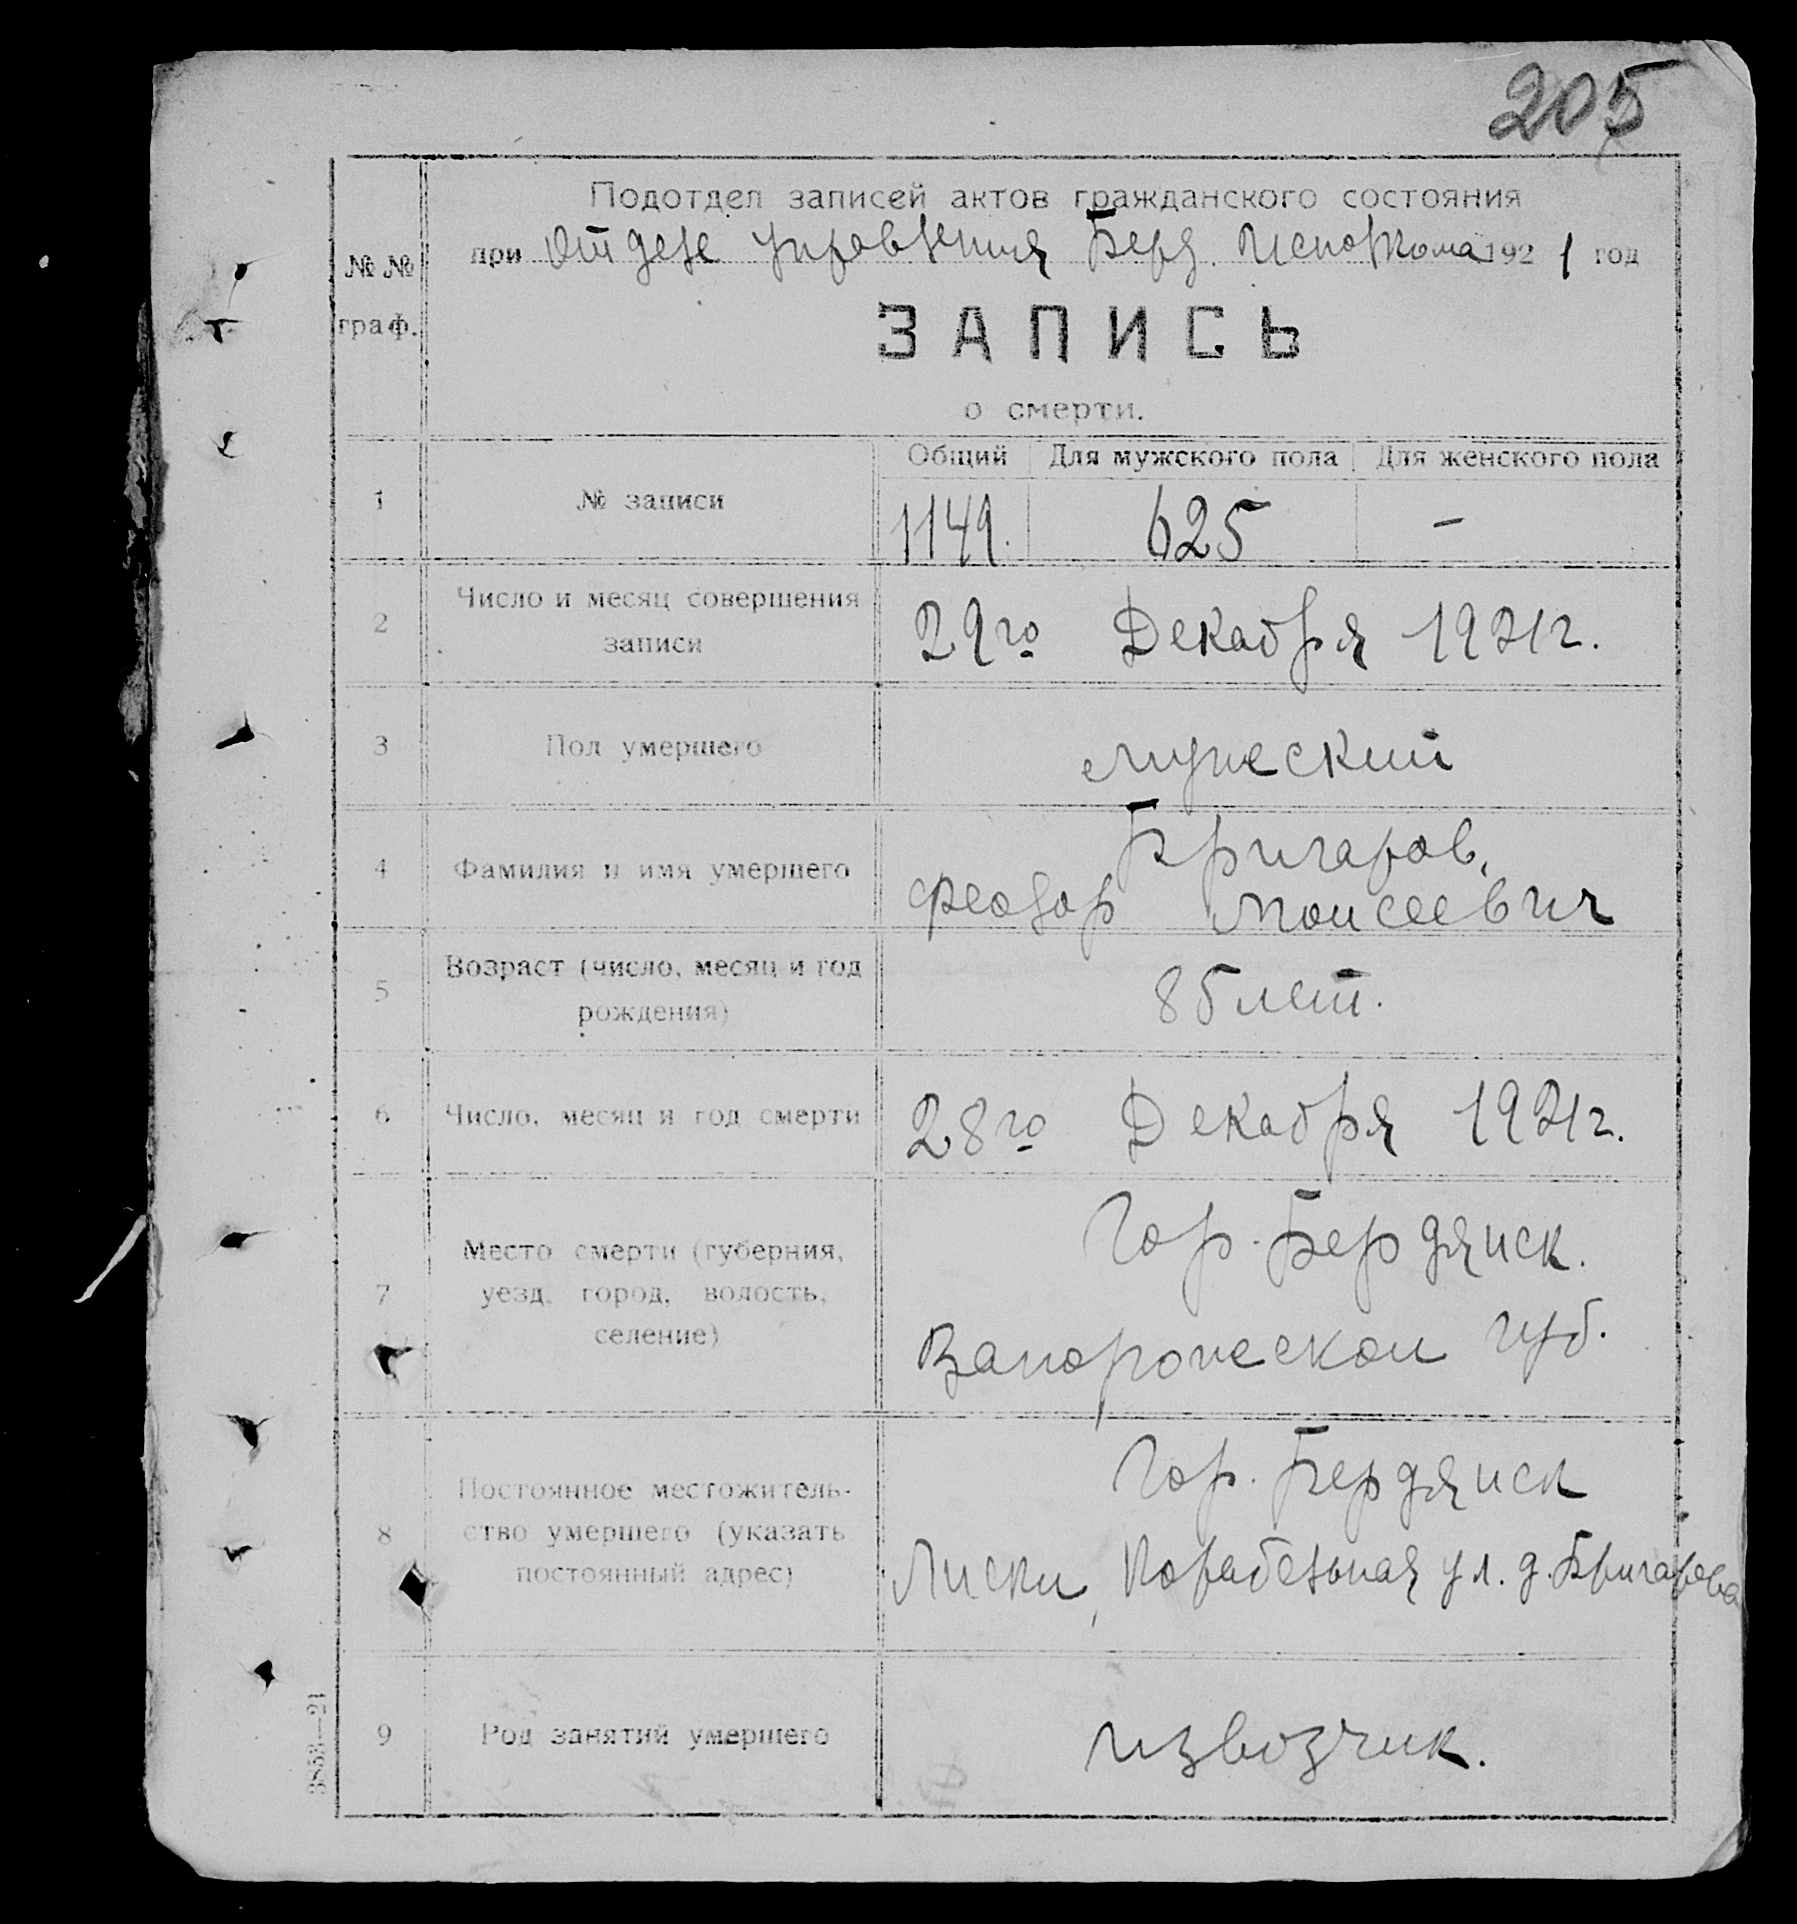 205
Подотдел записей актов гражданского состояния
при Отделе управления Берд. Исполкома 1921 год
№ № граф.
ЗАПИСЬ
о смерти.
Общий Для мужского пола Для женского пола
1 № записи 1149. 625 –
2 Число и месяц совершения записи 29го Декабря 1921г.
3 Пол умершего мужеский
4 Фамилия и имя умершего Бригаров,
Феодор Моисеевич
5 Возраст (число, месяц и год рождения) 85 лет.
6 Число, месяц и год смерти 28го Декабря 1921г.
7 Место смерти (губерния, уезд, город, волость, селение) Гор. Бердянск.
Запорожеской губ.
8 Постоянное местожитель-
ство умершего (указать постоянный адрес) Гор. Бердянск
Лиски, Корабельная ул. д. Бригарова
9 Род занятий умершего извозчик.
3853—21